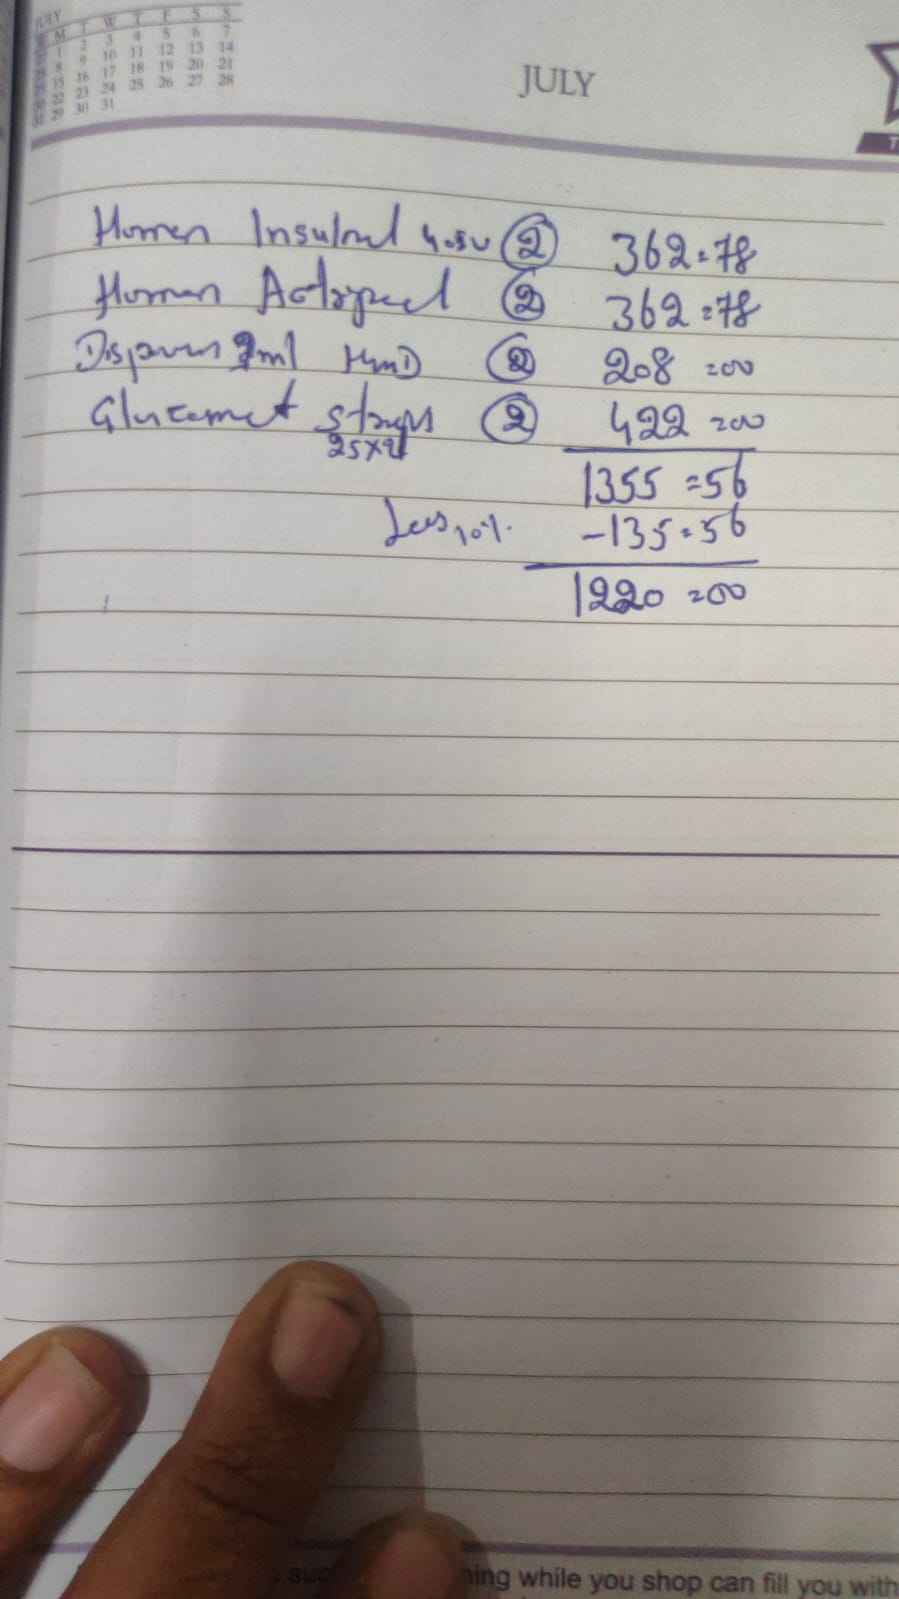 JULY
M T W T F S S
1 2 3 4 5 6 7
8 9 10 11 12 13 14
15 16 17 18 19 20 21
22 23 24 25 26 27 28
29 30 31
JULY
Human Insulard 40.IU ② 362=78
Human Actrapid ② 362=78
Dispovan 1ml ② 208=00
Glucomet strips ② 422=00
25x2
1355=56
Less 10% -135=56
1220=00
while you shop can fill you with